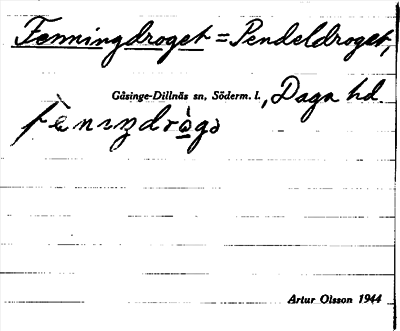 Fenningdroget = Pendeldroget,
Gåsinge-Dillnäs sn, Söderm. l., Daga hd.
Artur Olsson 1944